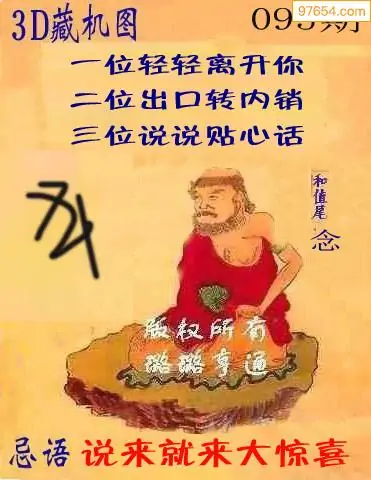 97654.com
3D藏机图
093期
一位轻轻离开你
二位出口转内销
三位说说贴心话
和值尾
念
74
版权所有
璐璐亨通
忌语 说来就来大惊喜